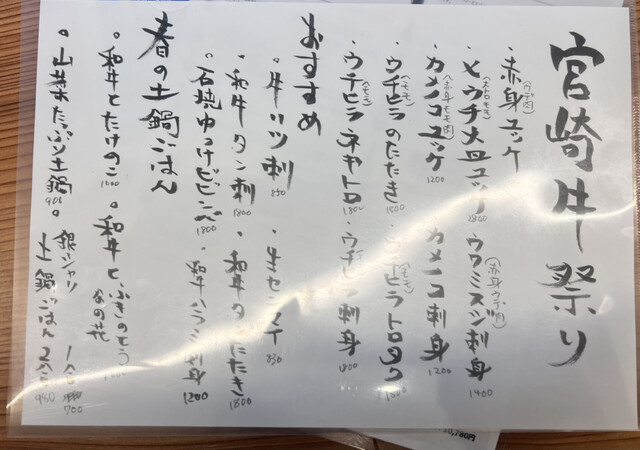 宮崎牛祭り
・赤身ユッケ(ウデ肉)
・ヒウチメ皿ユッケ(ネロモモ) 2800 ・ウワミスジ刺身(赤身ウデ肉) 1400
・カメノコユッケ(赤身モモ肉) 1200 ・カメノコ刺身 1200
・ウチヒラのたたき(モモ) 1500 ・ウチヒラトロタク(モモ)
・ウチヒラネギトロ(モモ) 1800 ・ウチヒラ刺身 1800
おすすめ
・牛ハツ刺 850 ・生センマイ 830
・和牛タン刺 1800 ・和牛タンたたき 1800
・石焼ゆっけビビンバ 1800 ・和牛ハラミ刺身 1200
春の土鍋ごはん
○和牛とたけのこ 1600 ○和牛とふきのとう 菜の花
○山菜たっぷり土鍋 980 ○銀シャリ 一合 700
土鍋ごはん2合 980
20,780円